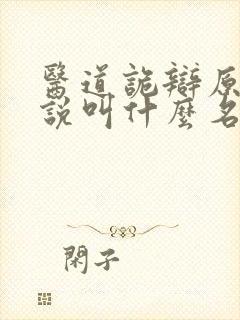 醫道詭辯原
說叫什麼名
閑子